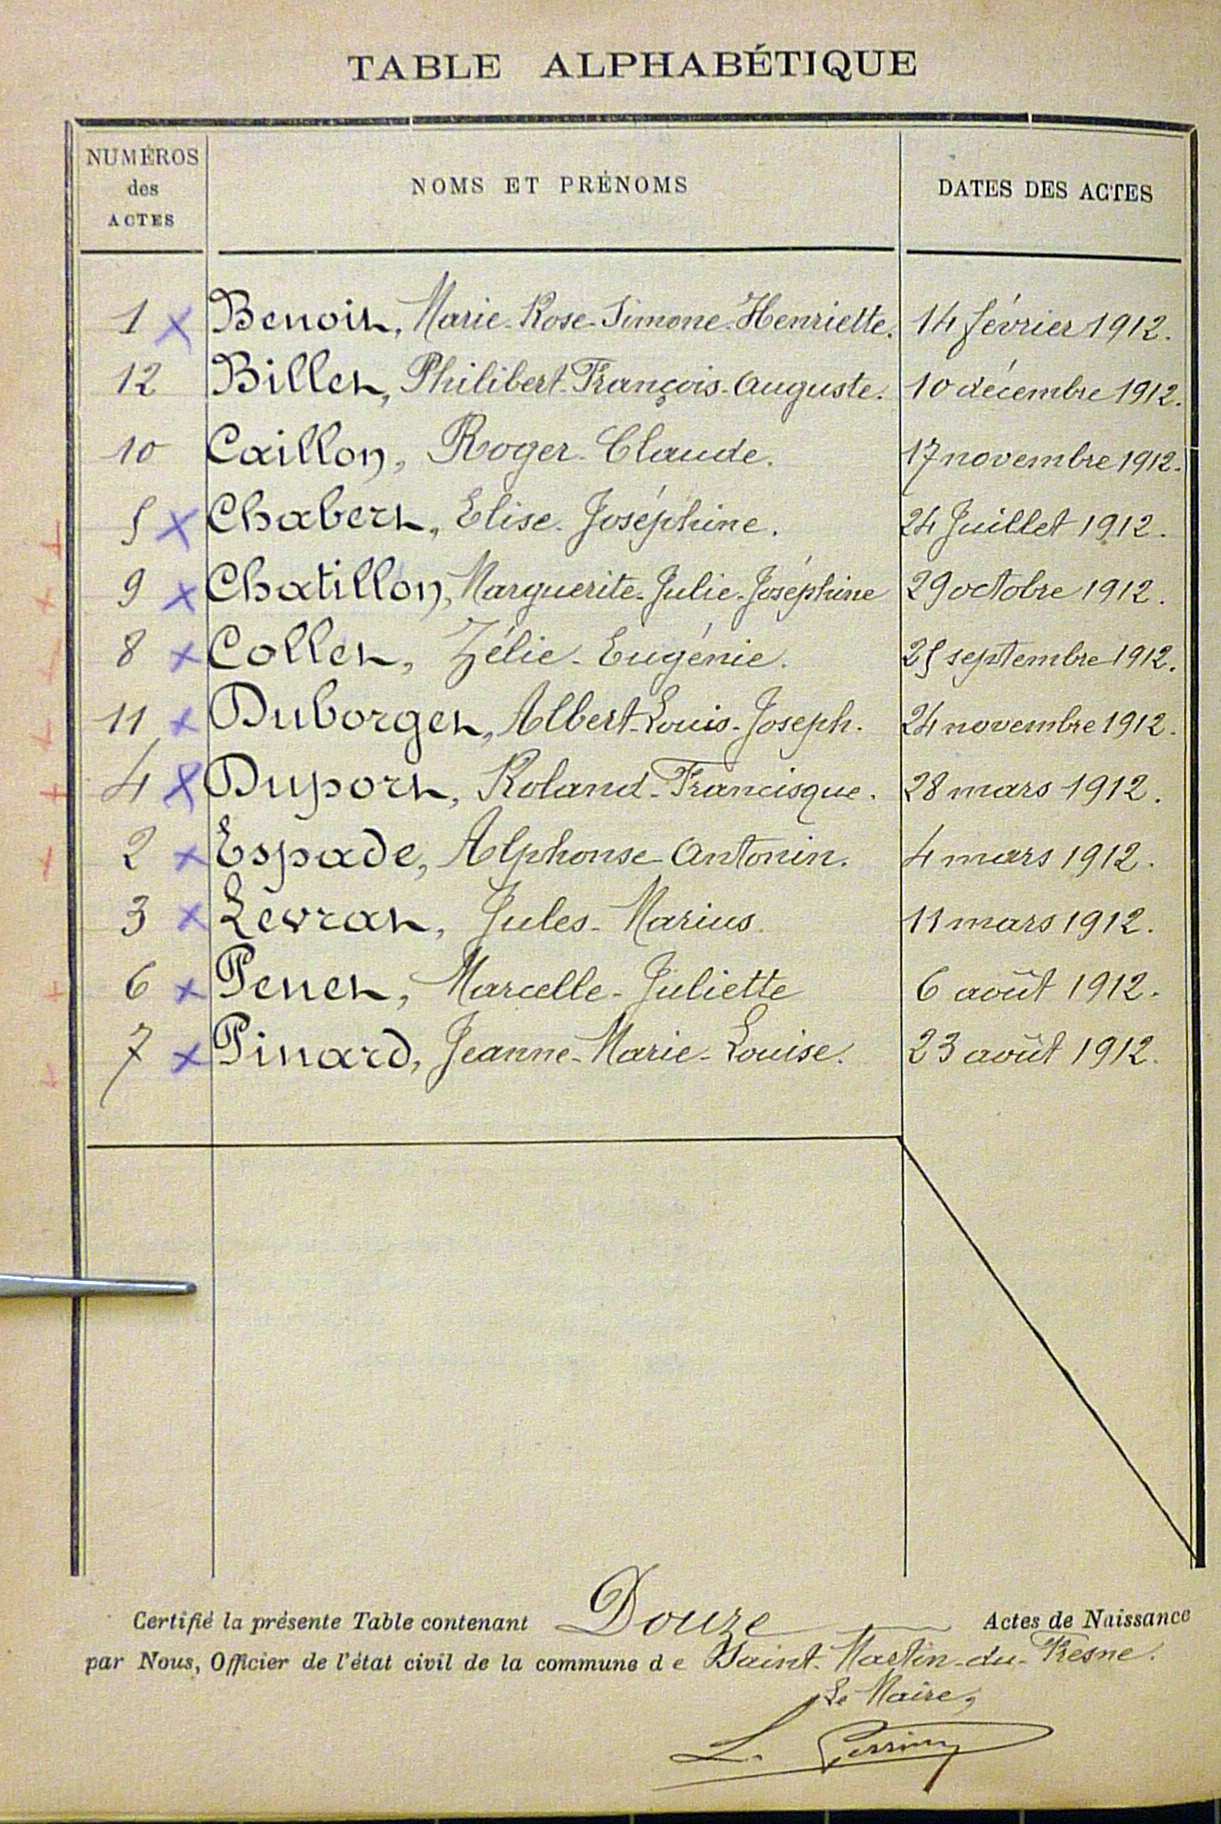 TABLE ALPHABÉTIQUE
NUMÉROS des ACTES NOMS ET PRÉNOMS DATES DES ACTES
1 Benoit, Marie-Rose-Simone-Henriette. 14 février 1912.
12 Billet, Philibert-François-Auguste. 10 décembre 1912.
10 Caillon, Roger-Claude. 17 novembre 1912.
5 Chabert, Elise-Joséphine. 24 Juillet 1912.
9 Chatillon, Marguerite-Julie-Joséphine 29 octobre 1912.
8 Collet, Zélie-Eugénie. 25 septembre 1912.
11 Duborget, Albert-Louis-Joseph. 24 novembre 1912.
4 Duport, Roland-Francisque. 28 mars 1912.
2 Espade, Alphonse-Antonin. 4 mars 1912.
3 Levrat, Jules-Marius. 11 mars 1912.
6 Penet, Marcelle-Juliette 6 août 1912.
7 Pinard, Jeanne-Marie-Louise. 23 août 1912.
Certifié la présente Table contenant Douze Actes de Naissance
par Nous, Officier de l'état civil de la commune de Saint-Martin-du-Fresne.
Le Maire,
L.